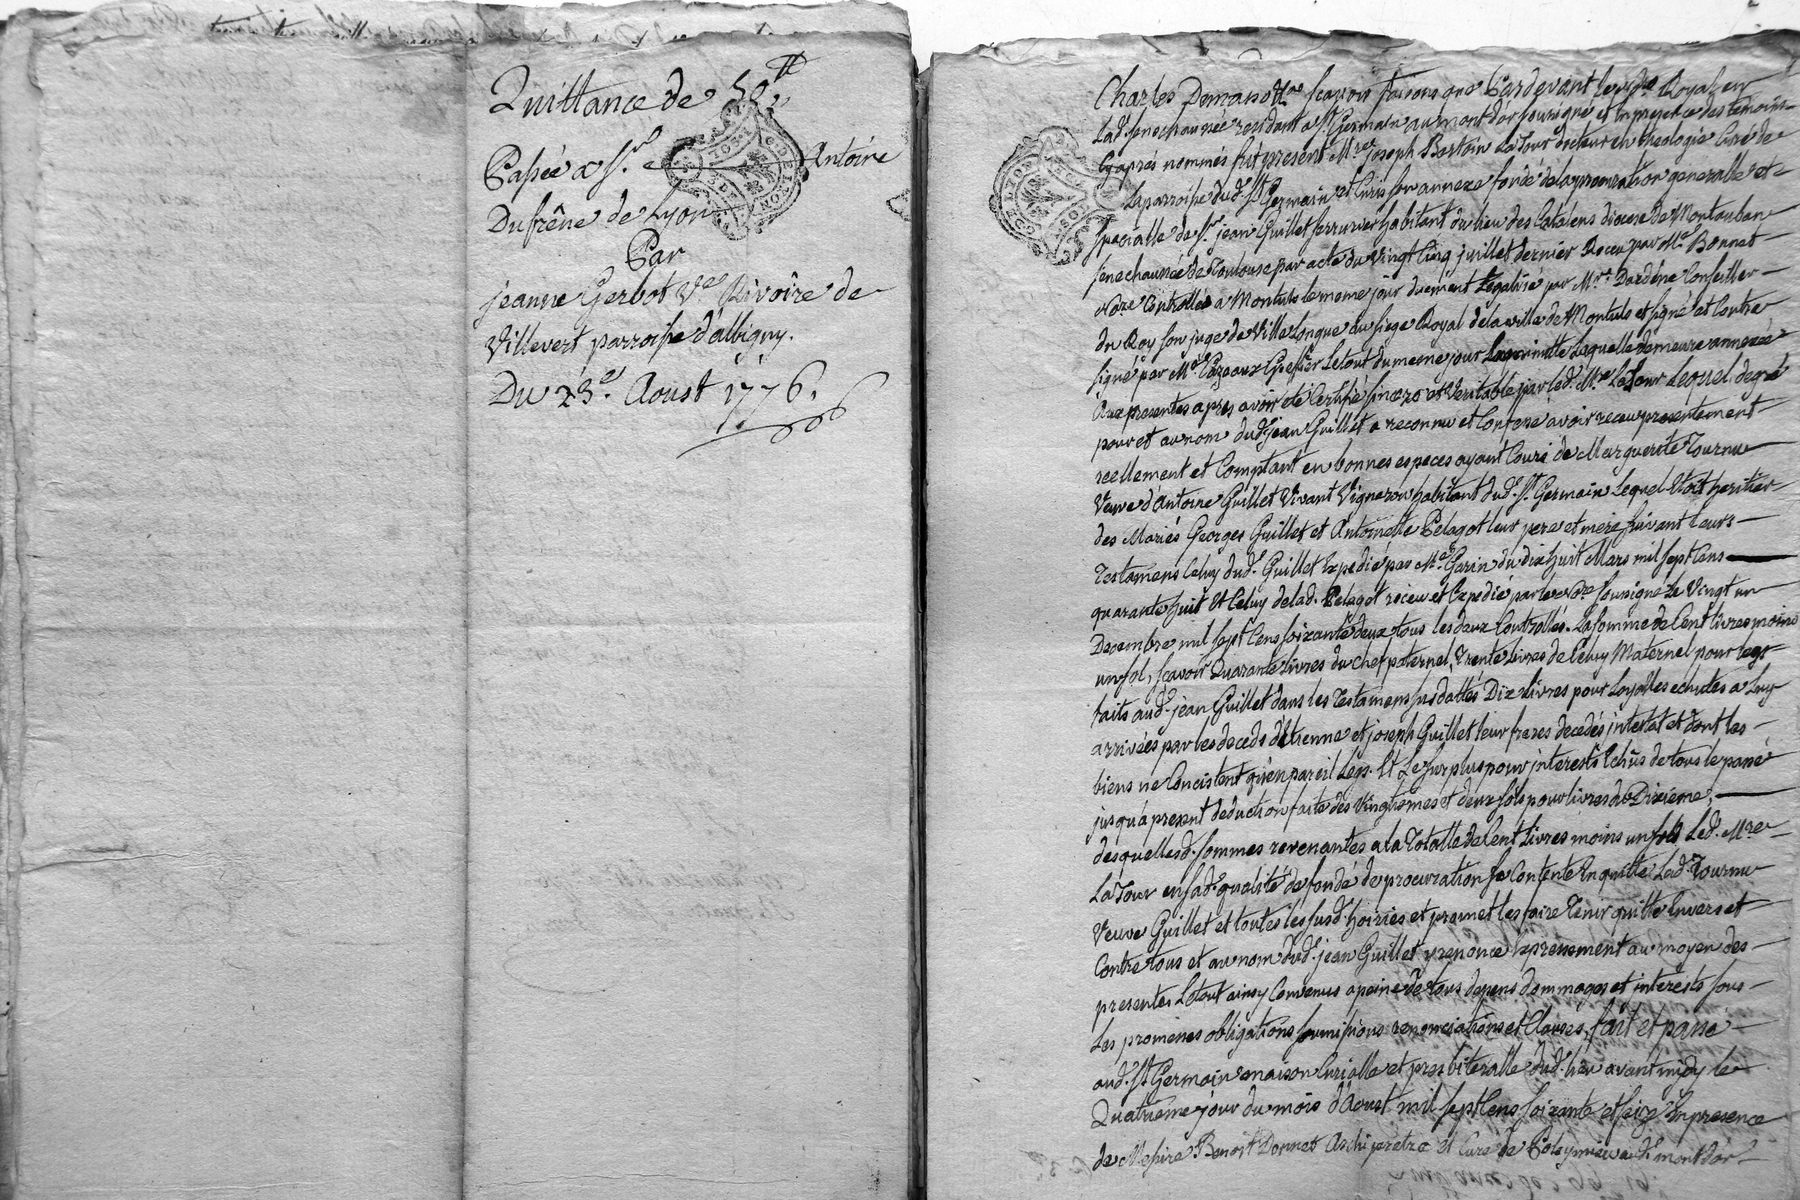 Quittance de 50.tt
Passée a Sr. Antoire
Dufrêne de Lyon
Par
jeanne Gerbot Ve Rivoire de
Villevert parroisse d'albigny.
Du 23.e Aoust 1776.
Charles Demans sçavoir faisons que Pardevant le Nore Royal en
lad. senechaussée residant a St Germain au mont d'or soussigné et en presence des temoins
Cyaprés nommés fut present Mre joseph Bertoin La Tour docteur en theologie Curé de
La parroisse dud. St Germain et Curis son annexe fondé de la procuration generalle et
specialle de Sr. jean Guillet serrurier habitant du lieu des Catalens diocese de Montauban
senechaussée de Toulouse par acte du Vingt Cinq juillet dernier Receu par Me Bonnet
Nore Controllée a Montuls le meme jour duement Legalisé par Mr. Dardéne Conseiller
du Roy son juge de Villelongue au siege Royal de la ville de Montuls et signé et Contre
signé par Me Cazeaux Greffier Le tout du meme jour La minutte Laquelle demeure annexée
aux presentes apres avoir eté Certifié sincere et Veritable par led. Mre La Tour Lequel de gré
pour et au nom dud. jean Guillet a reconnu et Confessé avoir receu presentement
reellement et Comptant en bonnes especes ayant Cours de Marguerite Tournu
Veuve d'Antoine Guillet Vivant Vigneron habitant dud. St Germain Lequel Etoit heritier
des Mariés Georges Guillet et Antoinette Pelagot leur pere et mere suivant leurs
Testamens Celuy dud. Guillet Expedié par Me. Garin du dix huit Mars mil sept Cens
quarante huit Et Celuy de lad. Pelagot receu et Expedié par le Nore soussigné Le Vingt un
Decembre mil sept Cens soixante deux tous les deux Controllés. La somme de Cent livres moins
un sol, sçavoir Quarante livres du chef paternel, Trente Livres de Celuy Maternel pour legs
faits aud. jean Guillet dans les Testamens susdattés Dix Livres pour Loyalles echutes a Luy
arrivées par les deceds d'Etienne et joseph Guillet leur freres decedés intestat et dont les
biens ne Concistent qu'en pareil Legs. Et Le surplus pour interests Echûs de tous le passé
jusqu'a present deduction faite des Vingtiemes et deux sols pour livres du Dixieme,
desquelles d. sommes revenantes a la Totalle de Cent Livres moins un sol Led. Mre
La Tour en sad. qualité de fondé de procuration se Contente En quitte Lad. Tournu
Veuve Guillet et toutes les susd. hoiries et promet les faire Tenir quitte Envers et
Contre tous et au nom dud. jean Guillet y renonce Expressement au moyen des
presentes Le tout ainsy Convenus a peine de tous depens dommages et interests sous
Les promesses obligations soumissions renonciations et Clauses, fait et passé
aud. St Germain maison Curialle et presbiteralle dud. lieu avant midy le
Quatrieme jour du mois d'Aoust mil sept Cens soixante et seize En presence
de Messire Benoit Dornet Archipretre Et Curé de Poleymieu au d. mont d'or